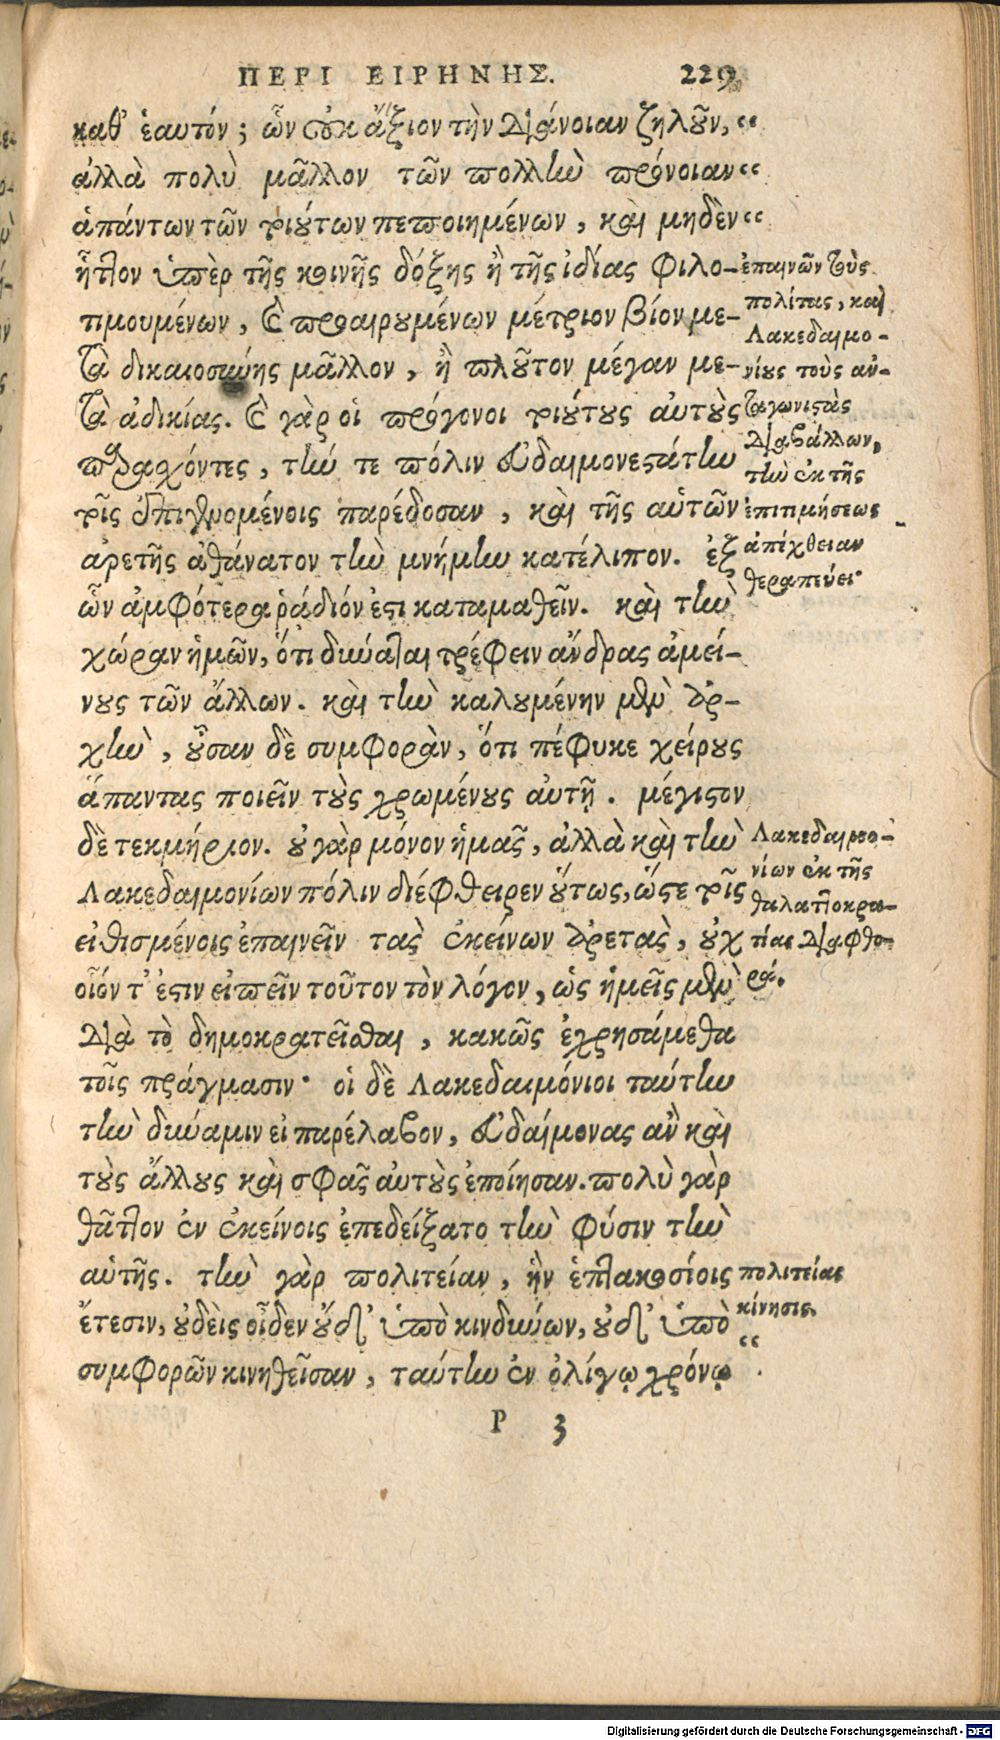 ΠΕΡΙ ΕΙΡΗΝΗΣ. 229
καθ' ἑαυτόν; ὧν οὐκ ἄξιον τὴν διάνοιαν ζηλοῦν, “
ἀλλὰ πολὺ μᾶλλον τῶν πολλὴν πρόνοιαν “
ἁπάντων τῶν τοιούτων πεποιημένων, καὶ μηδὲν “
ἧττον ὑπὲρ τῆς κοινῆς δόξης ἢ τῆς ἰδίας φιλο-
τιμουμένων, καὶ προαιρουμένων μέτριον βίον με-
τὰ δικαιοσύνης μᾶλλον, ἢ πλοῦτον μέγαν με-
τὰ ἀδικίας. καὶ γὰρ οἱ πρόγονοι τοιούτους αὑτοὺς
παρασχόντες, τήν τε πόλιν εὐδαιμονεστάτην
τοῖς ἐπιγινομένοις παρέδοσαν, καὶ τῆς αὑτῶν
ἀρετῆς ἀθάνατον τὴν μνήμην κατέλιπον. ἐξ
ὧν ἀμφότερα ῥᾴδιόν ἐστι καταμαθεῖν. καὶ τὴν
χώραν ἡμῶν, ὅτι δύναται τρέφειν ἄνδρας ἀμεί-
νους τῶν ἄλλων. καὶ τὴν καλουμένην μὲν ἀρ-
χὴν, οὖσαν δὲ συμφορὰν, ὅτι πέφυκε χείρους
ἅπαντας ποιεῖν τοὺς χρωμένους αὐτῇ. μέγιστον
δὲ τεκμήριον. οὐ γὰρ μόνον ἡμᾶς, ἀλλὰ καὶ τὴν
Λακεδαιμονίων πόλιν διέφθειρεν οὕτως, ὥστε τοῖς
εἰθισμένοις ἐπαινεῖν τὰς ἐκείνων ἀρετὰς, οὐχ
οἷόν τ' ἐστιν εἰπεῖν τοῦτον τὸν λόγον, ὡς ἡμεῖς μὲν
διὰ τὸ δημοκρατεῖσθαι, κακῶς ἐχρησάμεθα
τοῖς πράγμασιν· οἱ δὲ Λακεδαιμόνιοι ταύτην
τὴν δύναμιν εἰ παρέλαβον, εὐδαίμονας ἂν καὶ
τοὺς ἄλλους καὶ σφᾶς αὐτοὺς ἐποίησαν. πολὺ γὰρ
θᾶττον ἐν ἐκείνοις ἐπεδείξατο τὴν φύσιν τὴν
αὑτῆς. τὴν γὰρ πολιτείαν, ἣν ἑπτακοσίοις
ἔτεσιν, οὐδεὶς οἶδεν οὔδ' ὑπὸ κινδύνων, οὐδ' ὑπὸ
συμφορῶν κινηθεῖσαν, ταύτην ἐν ὀλίγῳ χρόνῳ “
P 3
ἐπαινῶν τοὺς
πολίτας, καὶ
Λακεδαιμο-
νίους τοὺς ἀν-
ταγωνιστὰς
διαβάλλων,
τὴν ἐκ τῆς
ἐπιτιμήσεως
ἀπέχθειαν
θεραπεύει·
Λακεδαιμο-
νίων ἐκ τῆς
θαλαττοκρα-
τίας διαφθο-
ρά.
πολιτείας
κίνησις.
Digitalisierung gefördert durch die Deutsche Forschungsgemeinschaft - DFG